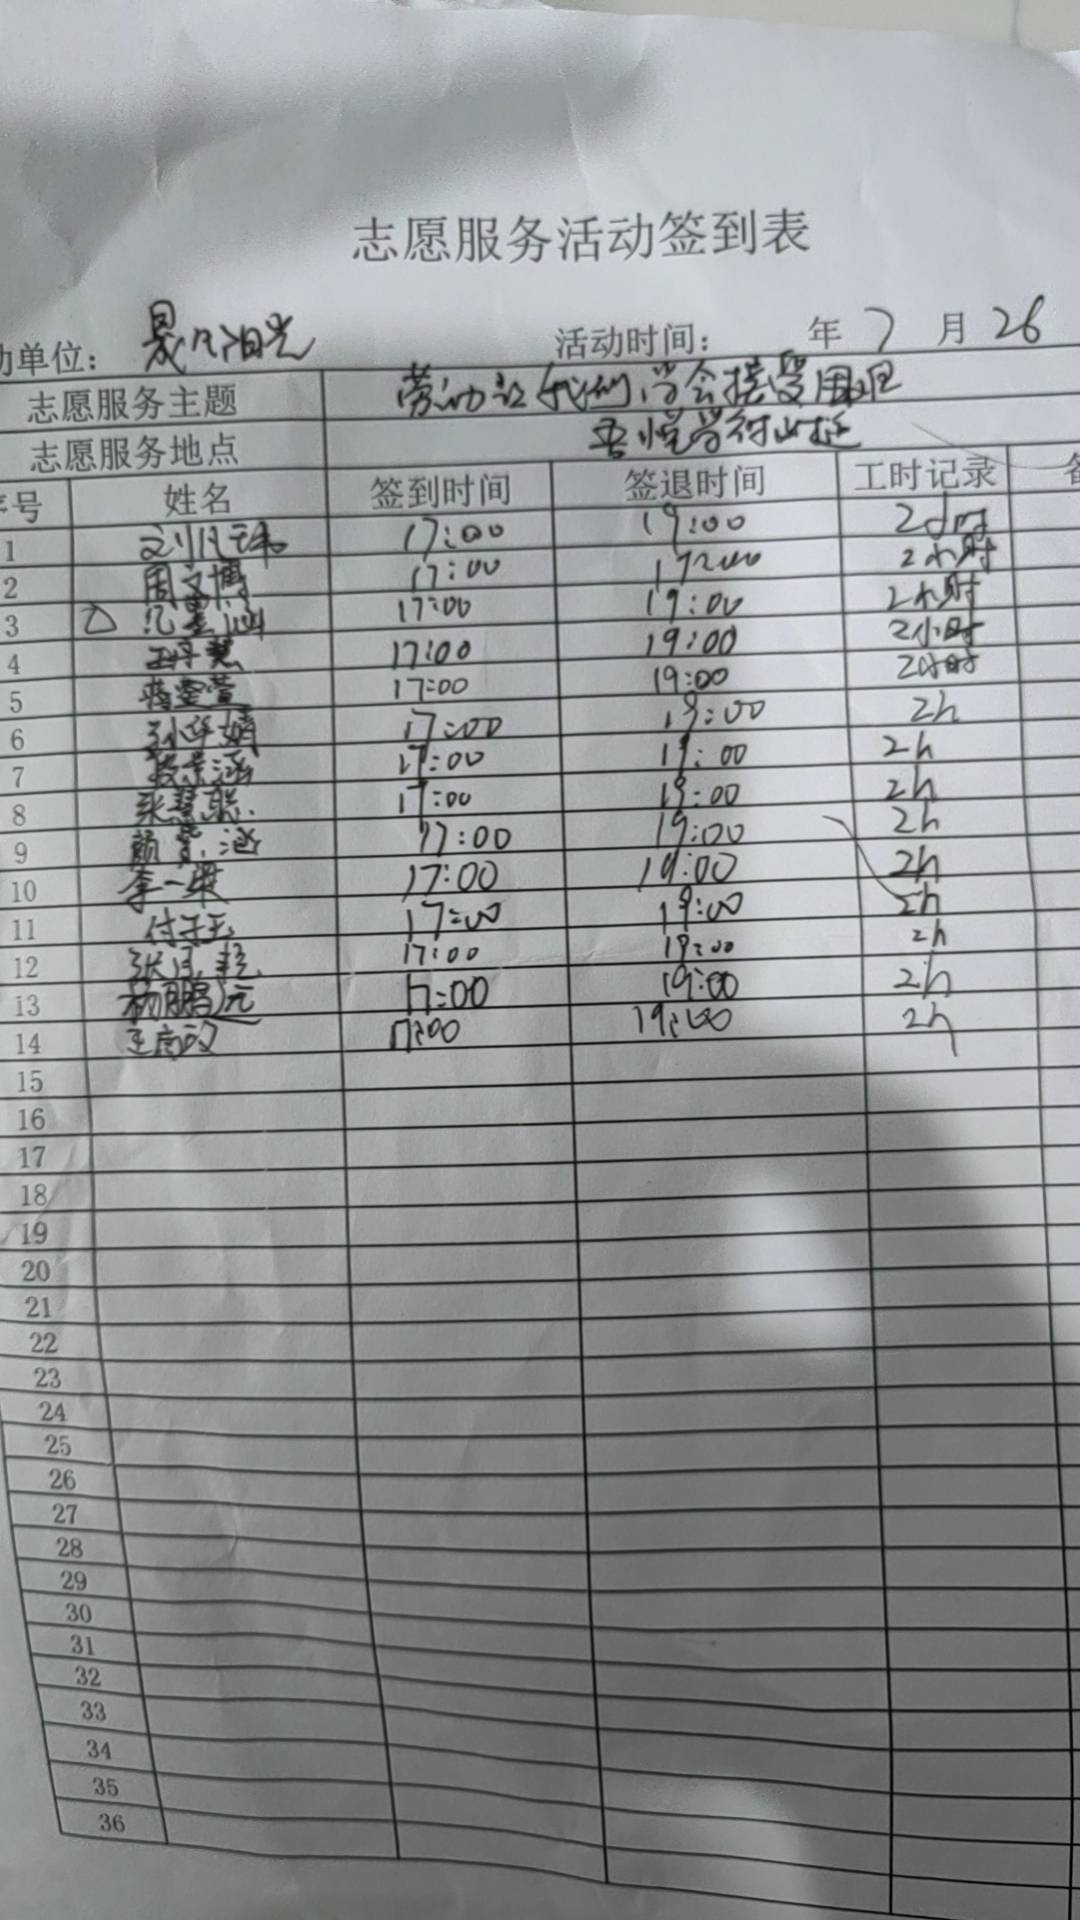 志愿服务活动签到表
动单位： 晟凡阳光 活动时间： 年 7 月 26
志愿服务主题 劳动让我们学会接受困难
志愿服务地点 吾悦学府
序号 姓名 签到时间 签退时间 工时记录 备
1 17:00 19:00 2小时
2 周文博 17:00 2小时
3 17:00 19:00 2小时
4 王丹慧 17:00 19:00 2小时
5 17:00 19:00 2小时
6 17:00 19:00 2h
7 17:00 19:00 2h
8 17:00 19:00 2h
9 17:00 19:00 2h
10 李一 17:00 19:00 2h
11 付子玉 17:00 19:00 2h
12 17:00 19:00 2h
13 杨鹏远 17:00 19:00 2h
14 17:00 19:00 2h
15
16
17
18
19
20
21
22
23
24
25
26
27
28
29
30
31
32
33
34
35
36